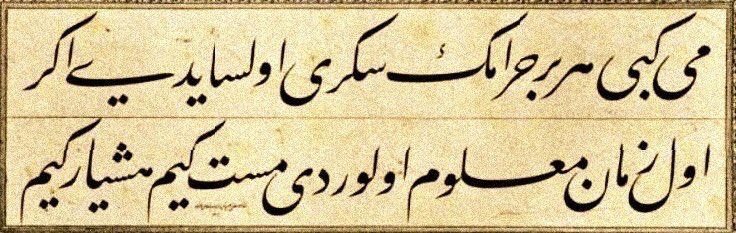 می کبی هر بر حرامك سكری اولسایدی اکر
اول زمان معلوم اولوردی مست کیم هشیار کیم